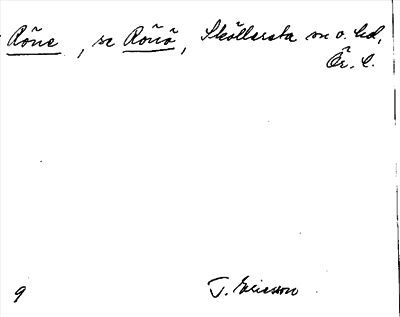 Rőne, se Rőnő, Sköllersta sn o. hd,
Ör. l.
9 J. Ericsson